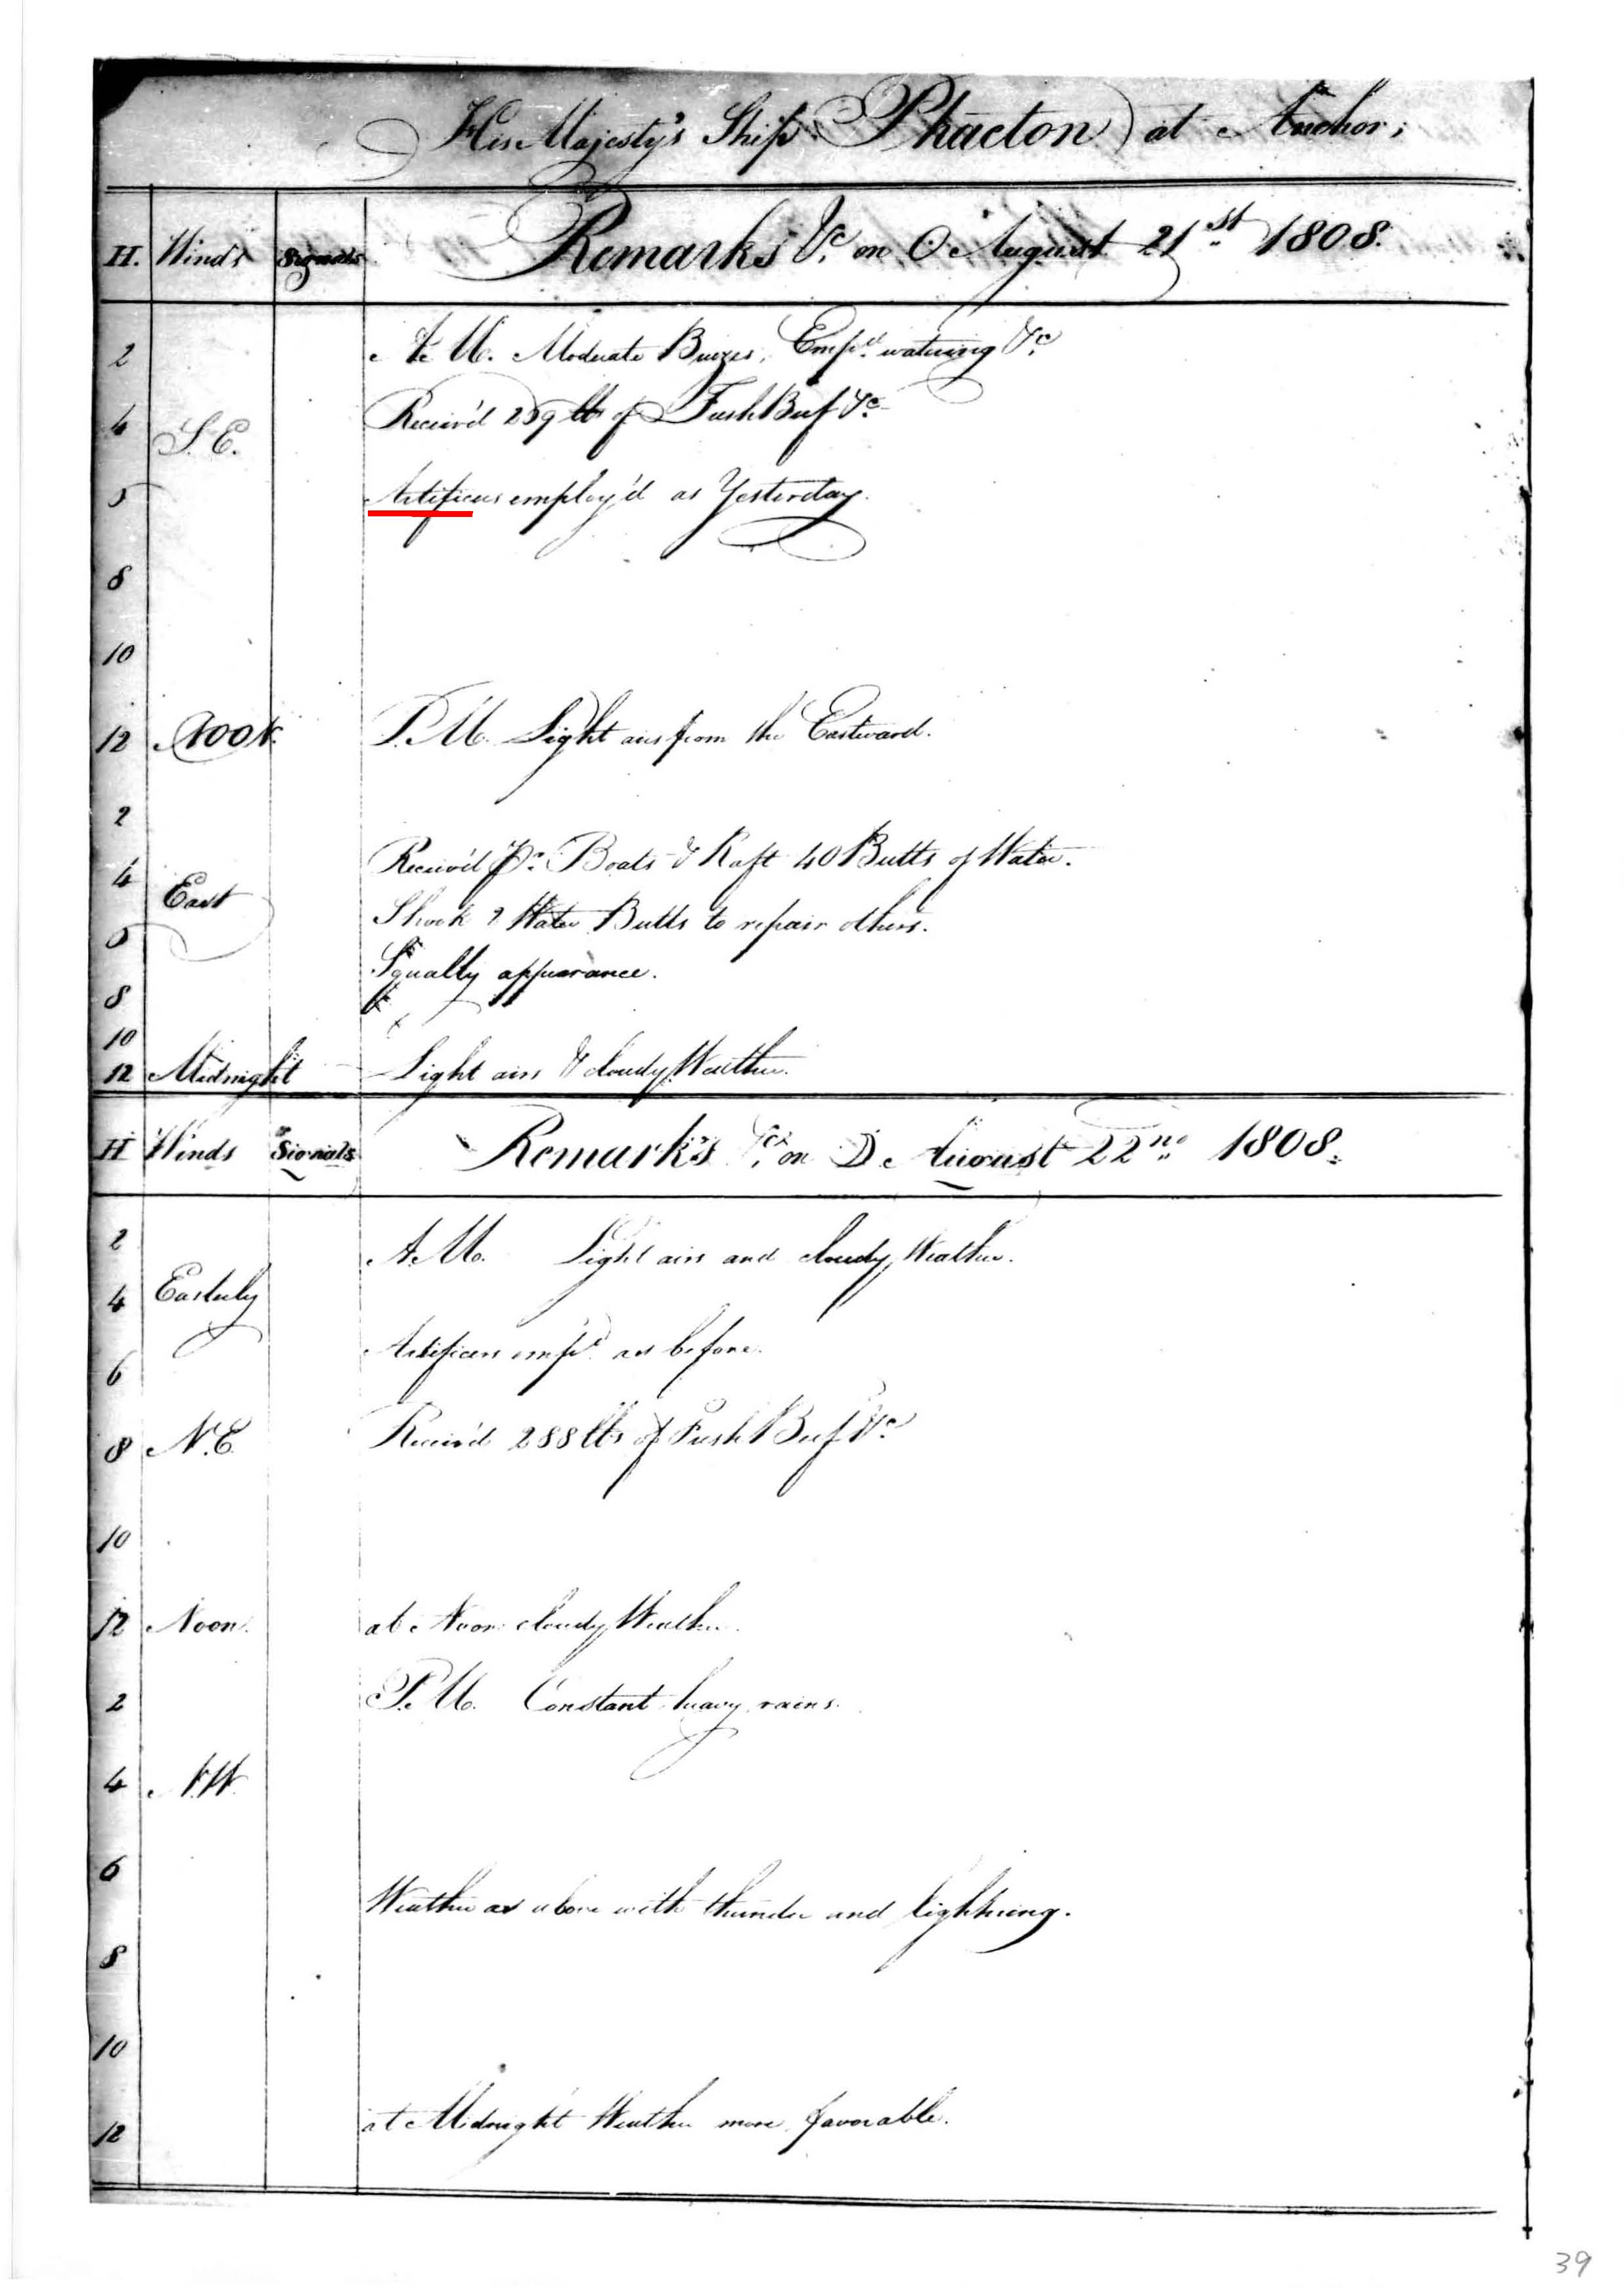 His Majesty's Ship Phaeton at Anchor;
H. Winds Signals Remarks &c. on ☉ August 21st 1808.
2 A.M. Moderate Breezes, Emp'd watering &c.
4 Receiv'd lbs of Fresh Beef &c
S.E.
6 Artificers employ'd as Yesterday.
8
10
12 Noon. P.M. Light airs from the Eastward.
2
4 Receiv'd Pr. Boats & Raft 40 Butts of Water.
East Shook 2 Water Butts to repair others.
6
Squally appearance.
8
10
12 Midnight Light airs & cloudy Weather.
H Winds Signals Remarks &c. on ☽ August 22nd 1808.
2 A.M. Light airs and cloudy Weather.
4 Easterly
6 Artificers emp'd as before.
8 N.E. Receiv'd 288 lbs of Fresh Beef &c
10
12 Noon. at Noon cloudy Weather.
2 P.M. Constant heavy rains.
4 N.W.
6
Weather as above with thunder and lightning.
8
10
12 at Midnight Weather more favorable.
39